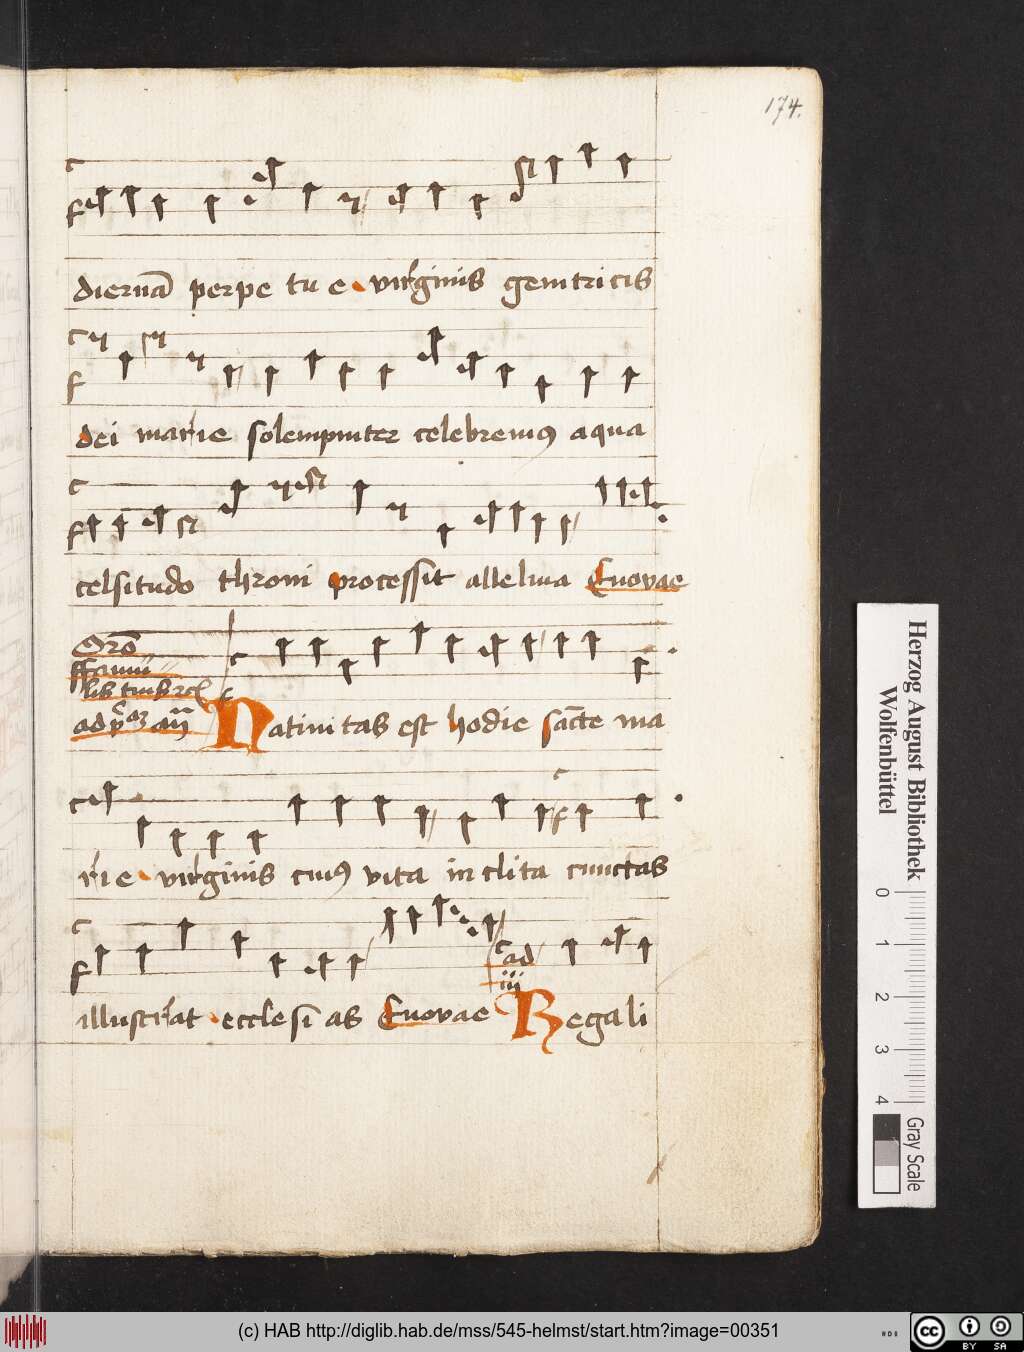 174.
diernā perpe tu e virginis genitricis
dei marie solempniter celebremus a qua
celsitudo throni processit alleluia Euovae
Orō
ad p'as an
Natiuitas est hodie sācte ma
rie virginis cuius vita inclita cunctas
ad
iij
illustrat ecclesī as Euovae Regali
Herzog August Bibliothek
Wolfenbüttel
0 1 2 3 4
Gray Scale
(c) HAB http://diglib.hab.de/mss/545-helmst/start.htm?image=00351
cc BY SA